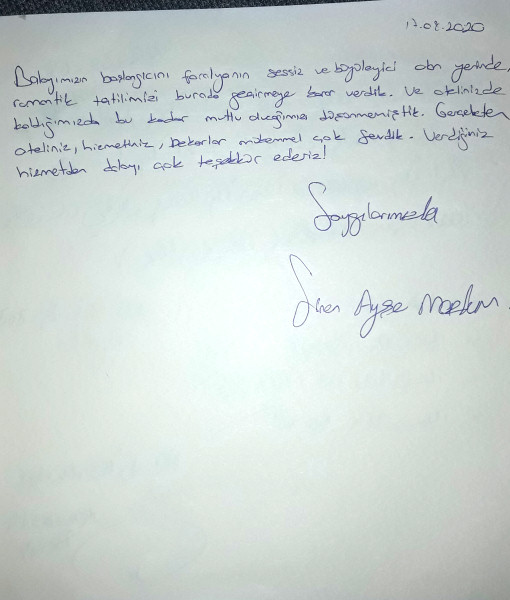 17.08.2020
Balayımızın başlangıcını faralyanın sessiz ve büyüleyici olan yerinde,
romantik tatilimizi burada geçirmeye karar verdik. Ve otelinizde
kaldığımızda bu kadar mutlu olacağımızı düşünmemiştik. Gerçekten
oteliniz, hizmetiniz, dekorlar mükemmel çok sevdik. Verdiğiniz
hizmetden dolayı çok teşekkür ederiz!
Saygılarımızla
Ayşe